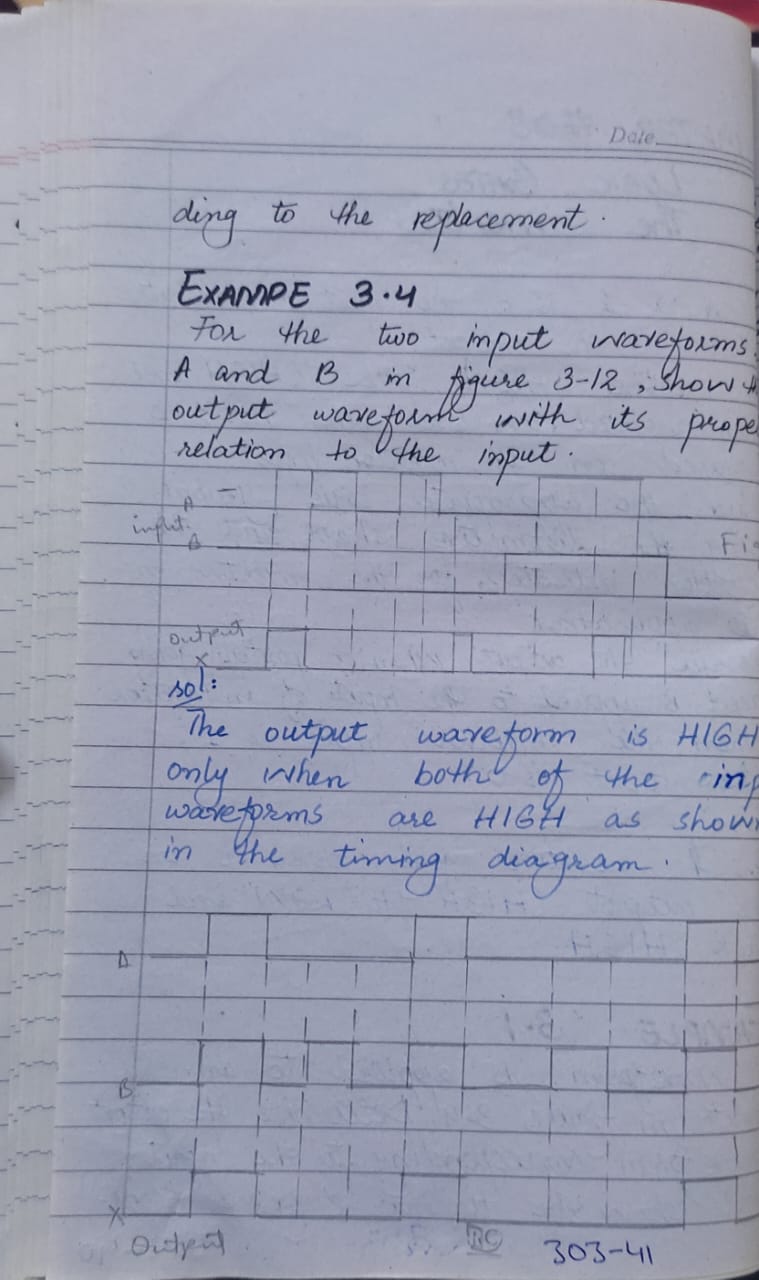 Date
ding to the replacement.
EXAMPE 3.4
For the two input waveforms
A and B in figure 3-12, show
output waveform with its prope
relation to the input.
A
input.
B
Fi
output
X
sol:
The output waveform is HIGH
only when both of the inp
waveforms are HIGH as show
in the timing diagram.
A
B
X
Output
RC
303-41